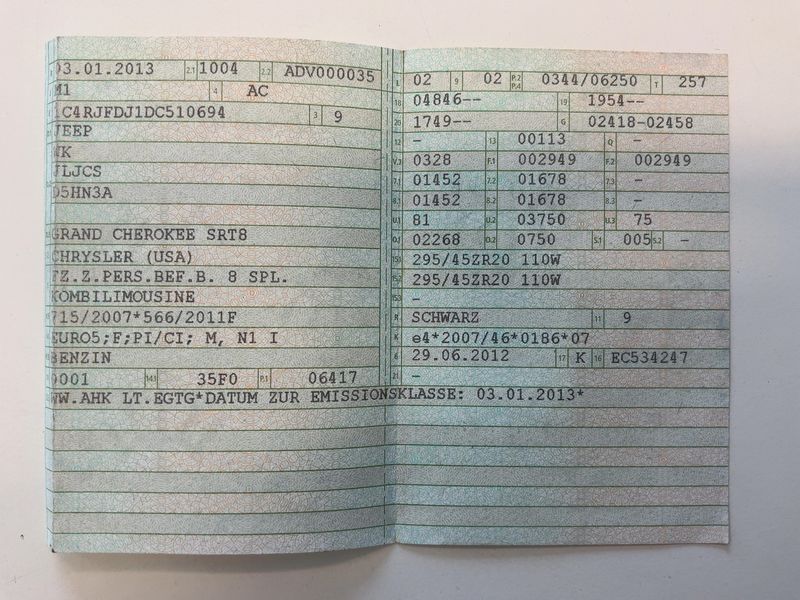 03.01.2013 2.1 1004 2.2 ADV000035
M1 4 AC
1C4RJFDJ1DC510694 3 9
JEEP
WK
JLJCS
D5HN3A
GRAND CHEROKEE SRT8
CHRYSLER (USA)
FZ.Z.PERS.BEF.B. 8 SPL.
KOMBILIMOUSINE
715/2007*566/2011F
EURO5;F;PI/CI; M, N1 I
BENZIN
0001 14.1 35F0 P.1 06417
WW.AHK LT.EGTG*DATUM ZUR EMISSIONSKLASSE: 03.01.2013*
L 02 9 02 P.2 P.4 0344/06250 T 257
18 04846-- 19 1954--
20 1749-- G 02418-02458
12 - 13 00113 Q -
V.7 0328 F.1 002949 F.2 002949
7.1 01452 7.2 01678 7.3 -
8.1 01452 8.2 01678 8.3 -
U.1 81 U.2 03750 U.3 75
O.1 02268 O.2 0750 S.1 005 S.2 -
15.1 295/45ZR20 110W
15.2 295/45ZR20 110W
15.3 -
R SCHWARZ 11 9
K e4*2007/46*0186*07
6 29.06.2012 17 K 16 EC534247
21 -